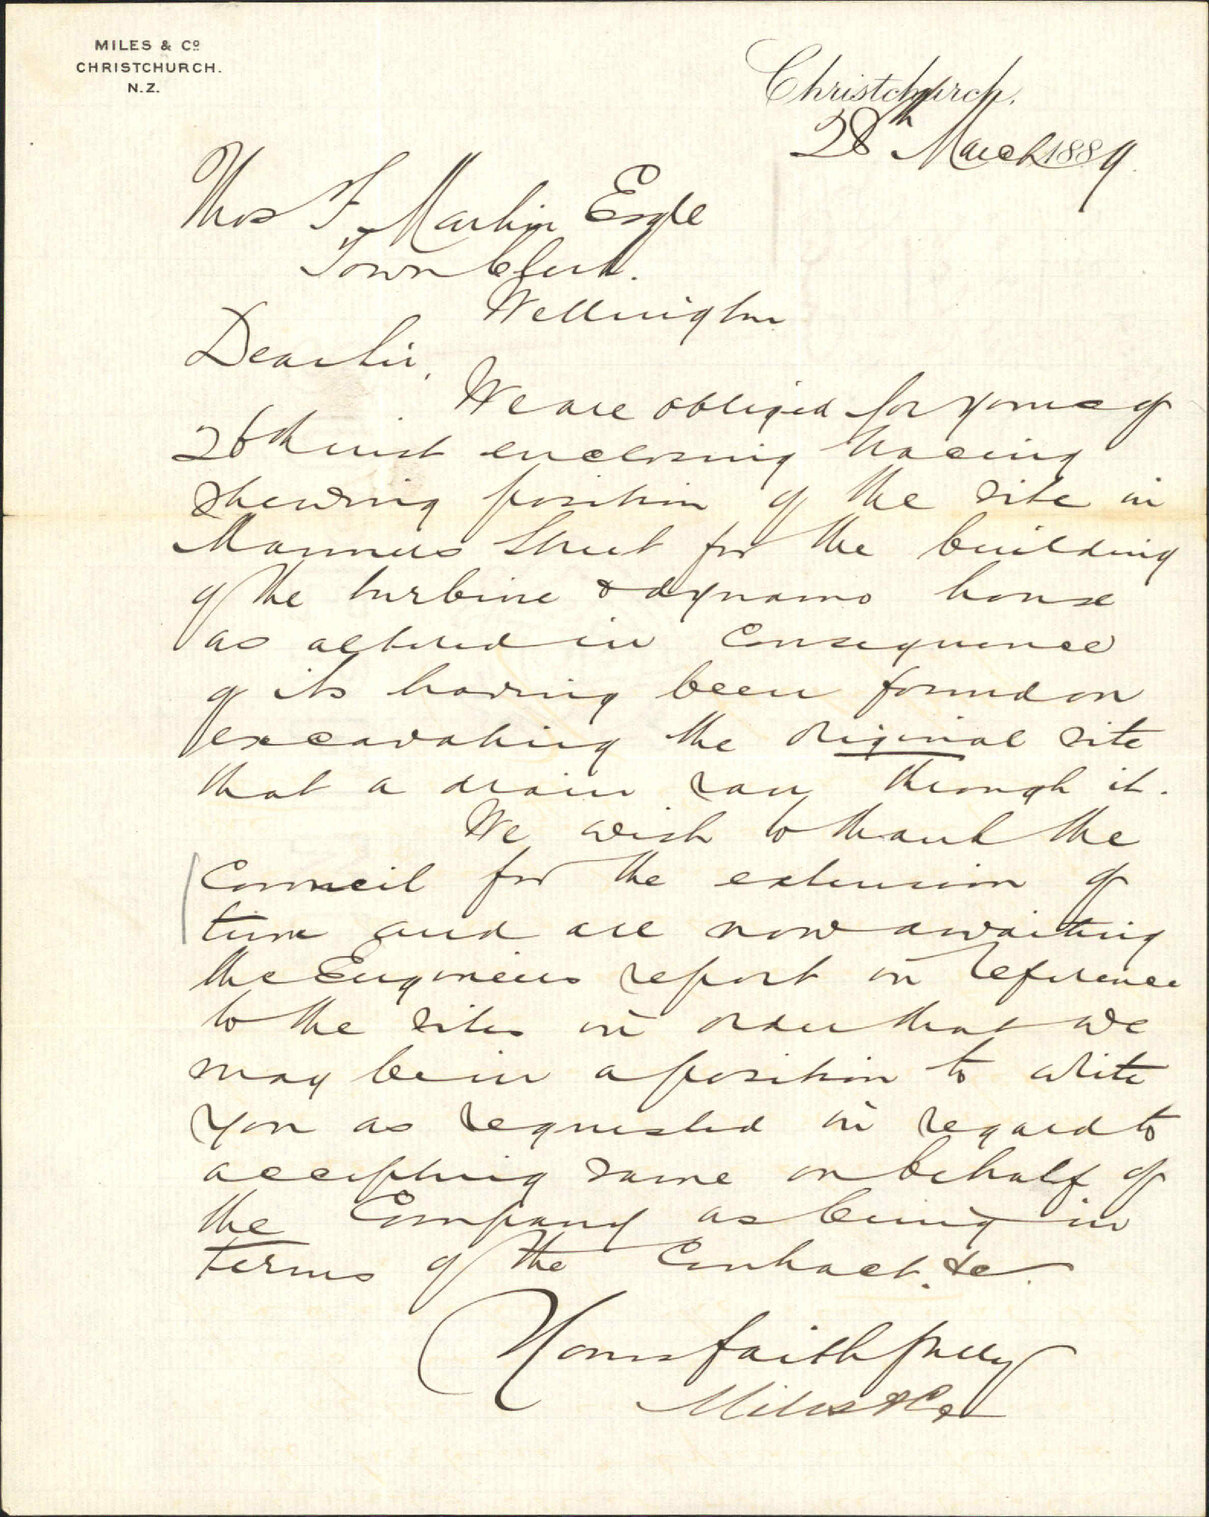 MILES & Co
CHRISTCHURCH.
N.Z.
Christchurch,
28th March 1889.
Thos F. Martin Esqre
Town Clerk.
Wellington
Dear Sir,
We are obliged for yours of
26th inst enclosing tracing
shewing position of the site in
Manners Street for the building
of the turbine & dynamo house
as altered in consequence
of its having been found on
excavating the original site
that a drain ran through it.
We wish to thank the
Council for the extension of
time and are now awaiting
the Engineers report in reference
to the sites in order that we
may be in a position to write
you as requested in regard to
accepting same on behalf of
the Company as being in
terms of the Contract. &c.
Yours faithfully
Miles & Co